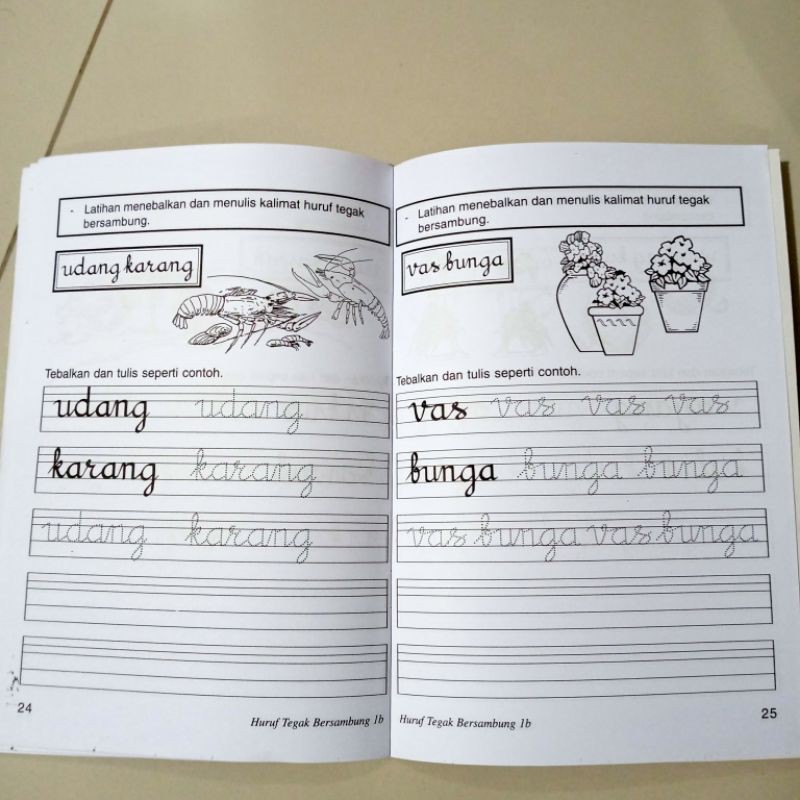 - Latihan menebalkan dan menulis kalimat huruf tegak
bersambung.
udang karang
Tebalkan dan tulis seperti contoh.
udang udang
karang karang
udang karang
24
Huruf Tegak Bersambung 1b
- Latihan menebalkan dan menulis kalimat huruf tegak
bersambung.
vas bunga
Tebalkan dan tulis seperti contoh.
vas vas vas vas
bunga bunga bunga
vas bunga vas bunga
Huruf Tegak Bersambung 1b
25